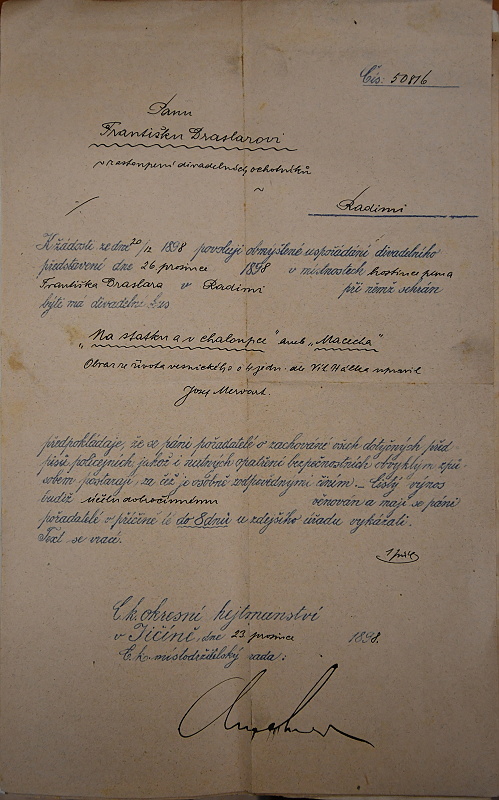 Čís: 50816
Panu
Františku Draslarovi
v zastoupení divadelních ochotníků
Radimi
K žádosti ze dne 20/12 1898 povoluji obmýšlené uspořádání divadelního
představení dne 26 prosince 1898 v místnostech hostince pana
Františka Draslara v Radimi při němž sehrán
býti má divadelní kus
„Na statku a v chaloupce" aneb „Macecha"
Obraz ze života vesnického o 4 jedn. dle Vít. Hálka upravil
Josef Mervart.
předpokládaje, že se páni pořadatelé o zachování všech dotyčných před
pisů policejních, jakož i nutných opatření bezpečnostních obvyklým způ
sobem postarají, za čež je osobně zodpovědnými činím. – Čistý výnos
budiž účelu dobročinnému věnován a mají se páni
pořadatelé v příčině té do 8 dnů u zdejšího úřadu vykázati.
Text se vrací.
C. k. okresní hejtmanství
v Jičíně, dne 23 prosince 1898.
C. k. místodržitelský rada: